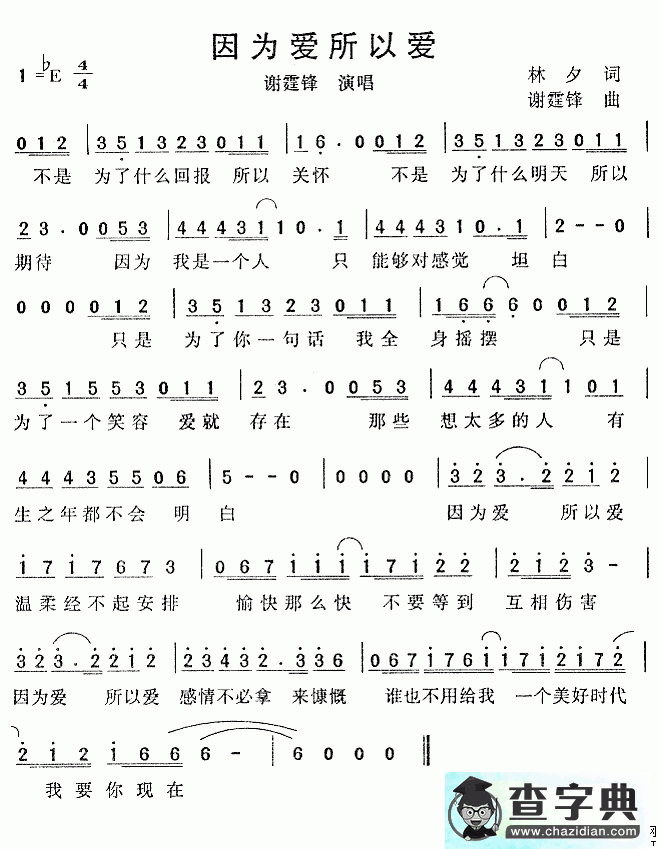 因为爱所以爱
1=♭E 4/4
谢霆锋 演唱
林夕 词
谢霆锋 曲
012 | 35132301 1 | 16·0012 | 351323011 |
不是 为了什么回报 所以 关怀 不是 为了什么明天 所以
23·0053 | 4443110·1 | 444310·1 | 2--0 |
期待 因为 我是一个人 只 能够对感觉 坦白
0000012 | 351323011 | 16660012 |
只是 为了你一句话 我全 身摇摆 只是
351553011 | 23·0053 | 44431101 |
为了一个笑容 爱就 存在 那些 想太多的人 有
44435506 | 5--0 | 0000 | 323·2212 |
生之年都不会 明白 因为爱 所以爱
1717673 | 0671117122 | 2123- |
温柔经不起安排 愉快那么快 不要等到 互相伤害
323·2212 | 23432·336 | 067176171712172 |
因为爱 所以爱 感情不必拿 来慷慨 谁也不用给我 一个美好时代
212166 6- | 6000 ||
我要你现在
查字典
www.chazidian.com